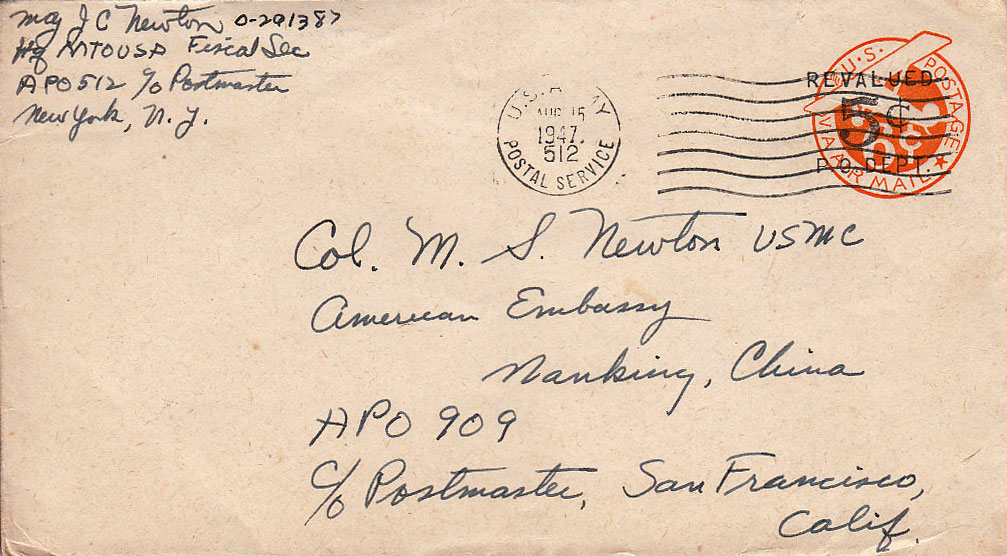 Maj J C Newton O-291387
Hq MTOUSA Fiscal Sec
APO 512 c/o Postmaster
New York, N.Y.
U.S. ARMY
AUG 15
1947
512
POSTAL SERVICE
U.S. POSTAGE
REVALUED
5¢
P.O. DEPT.
VIA AIR MAIL
Col. M. S. Newton USMC
American Embassy
Nanking, China
APO 909
c/o Postmaster, San Francisco,
Calif.